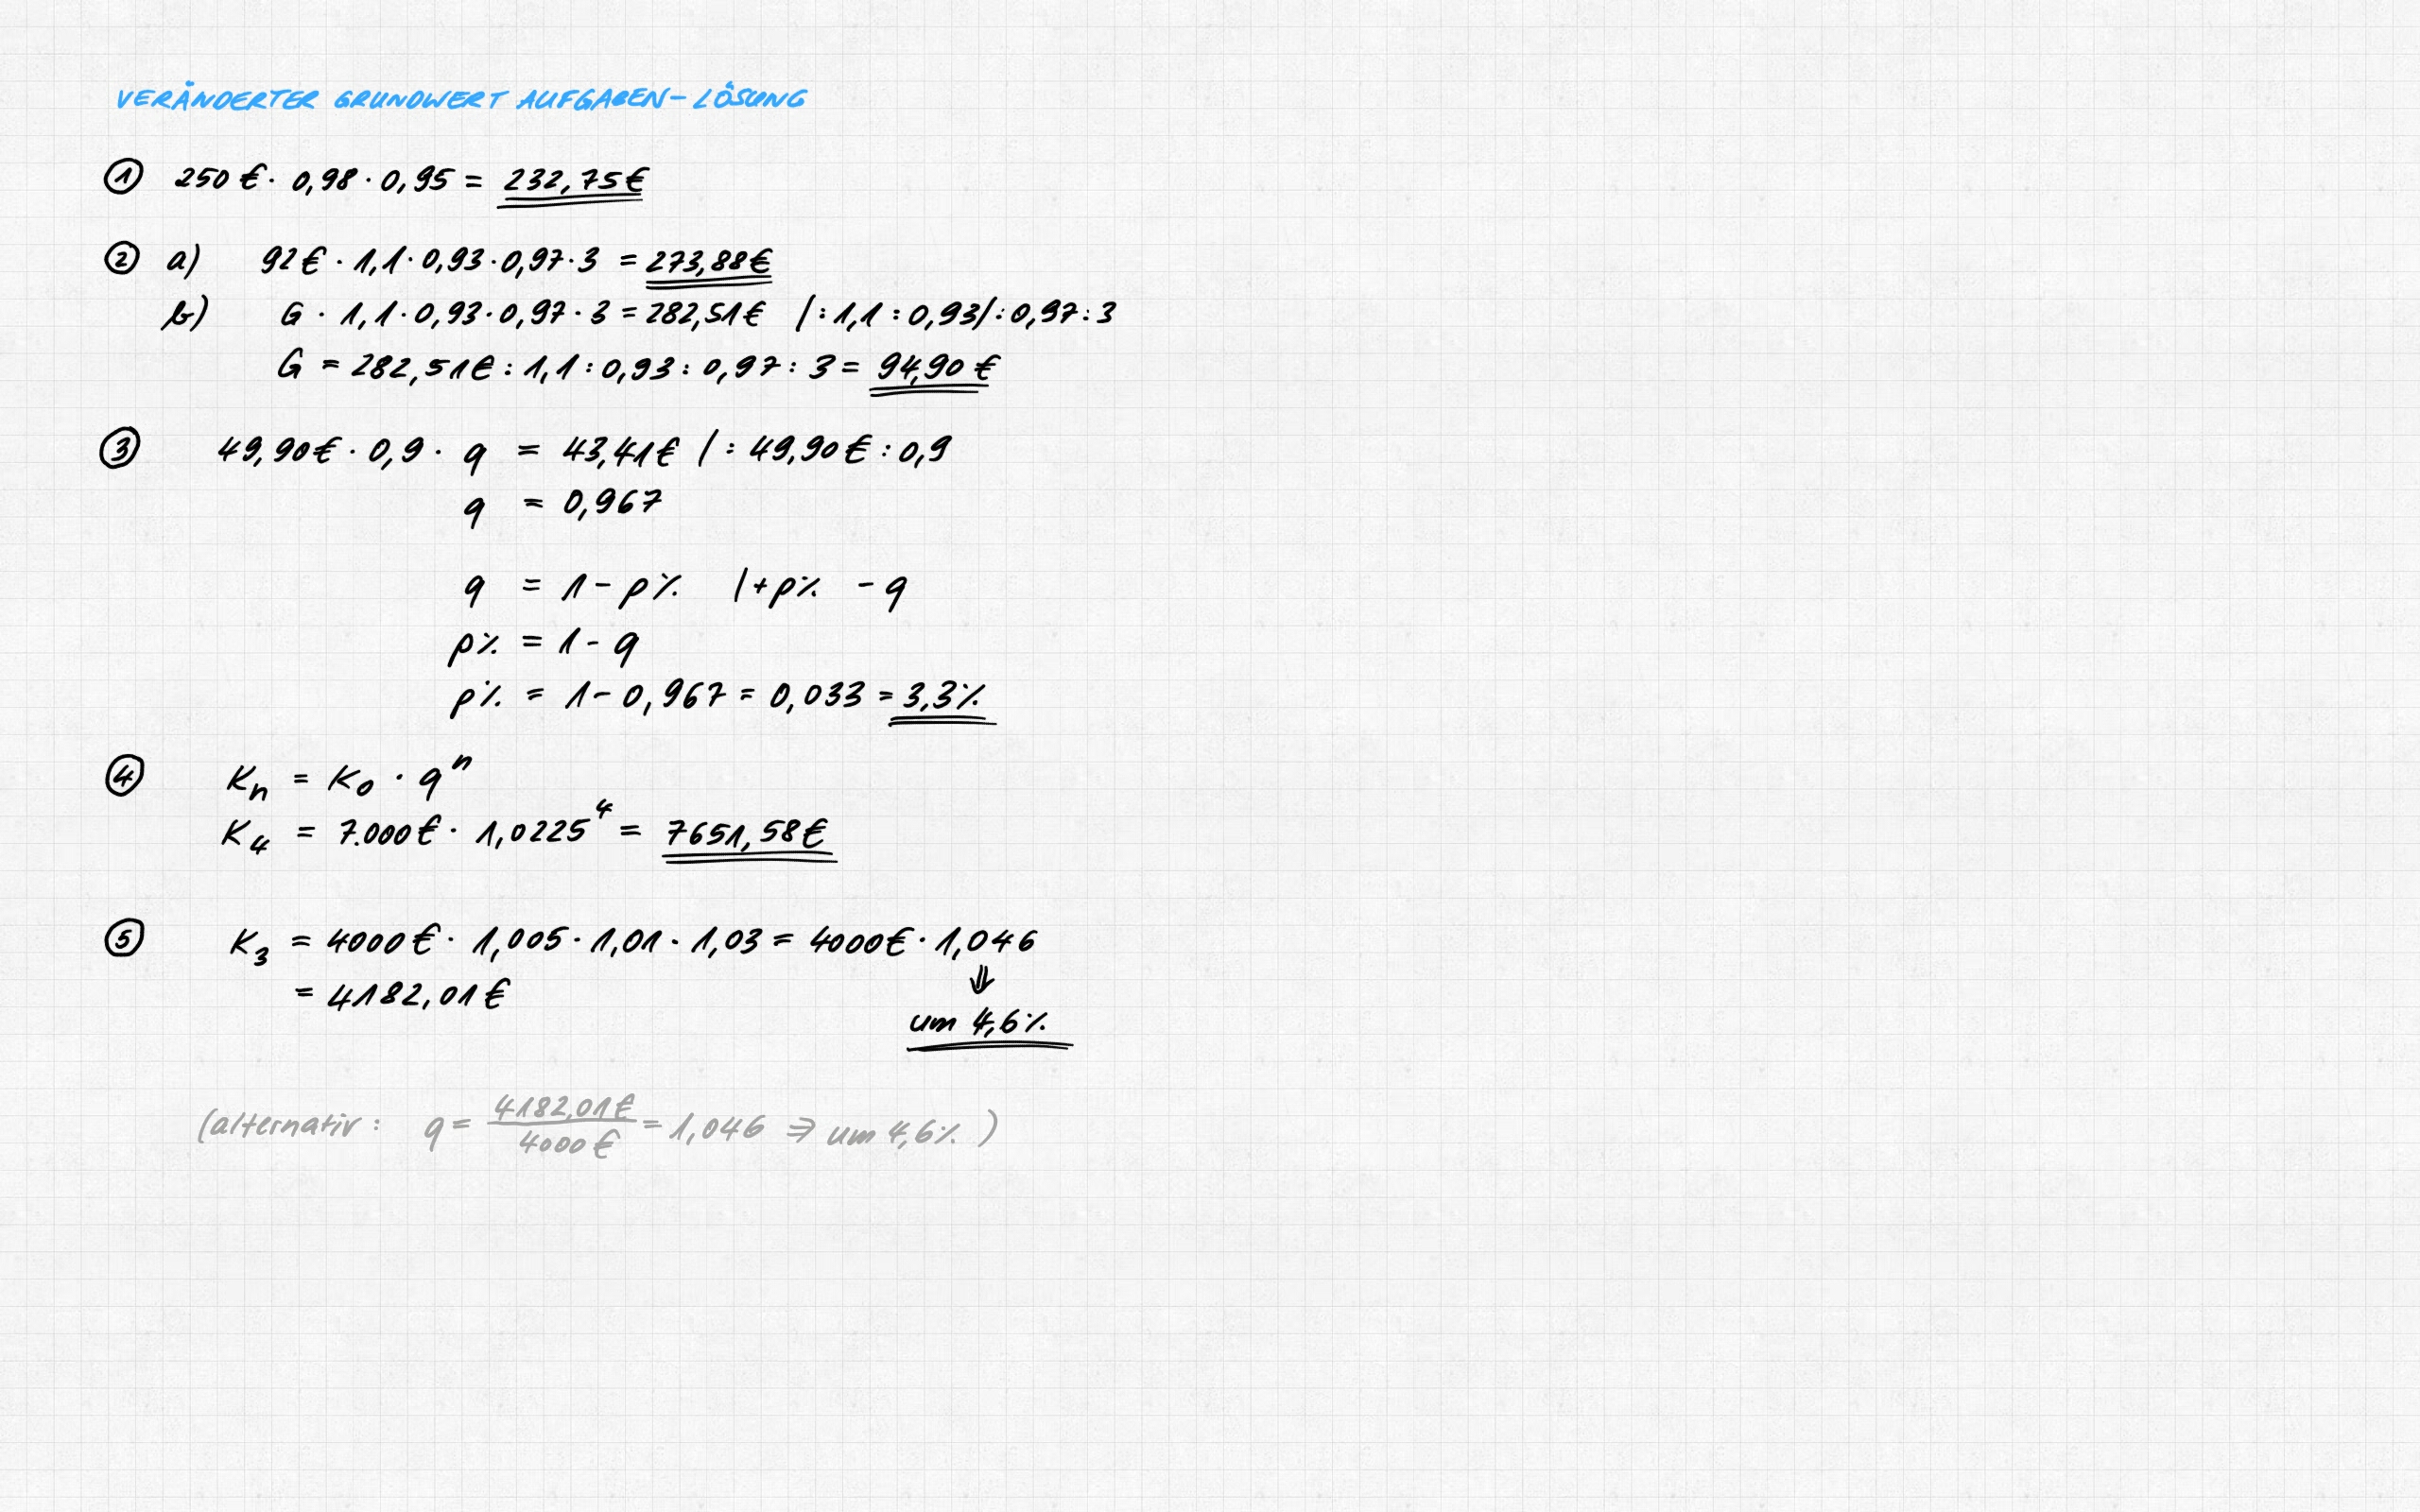 VERÄNDERTER GRUNDWERT AUFGABEN-LÖSUNG
① 250 € · 0,98 · 0,95 = 232,75 €
② a) 92 € · 1,1 · 0,93 · 0,97 · 3 = 273,88 €
b) G · 1,1 · 0,93 · 0,97 · 3 = 282,51 € | : 1,1 : 0,93 | : 0,97 : 3
G = 282,51 € : 1,1 : 0,93 : 0,97 : 3 = 94,90 €
③ 49,90 € · 0,9 · q = 43,41 € | : 49,90 € : 0,9
q = 0,967
q = 1 - p% | + p% - q
p% = 1 - q
p% = 1 - 0,967 = 0,033 = 3,3%
④ Kₙ = K₀ · qⁿ
K₄ = 7.000 € · 1,0225⁴ = 7651,58 €
⑤ K₃ = 4000 € · 1,005 · 1,01 · 1,03 = 4000 € · 1,046
⇓
= 4182,01 €
um 4,6%
(alternativ : q = 4182,01 € / 4000 € = 1,046 ⇒ um 4,6% )